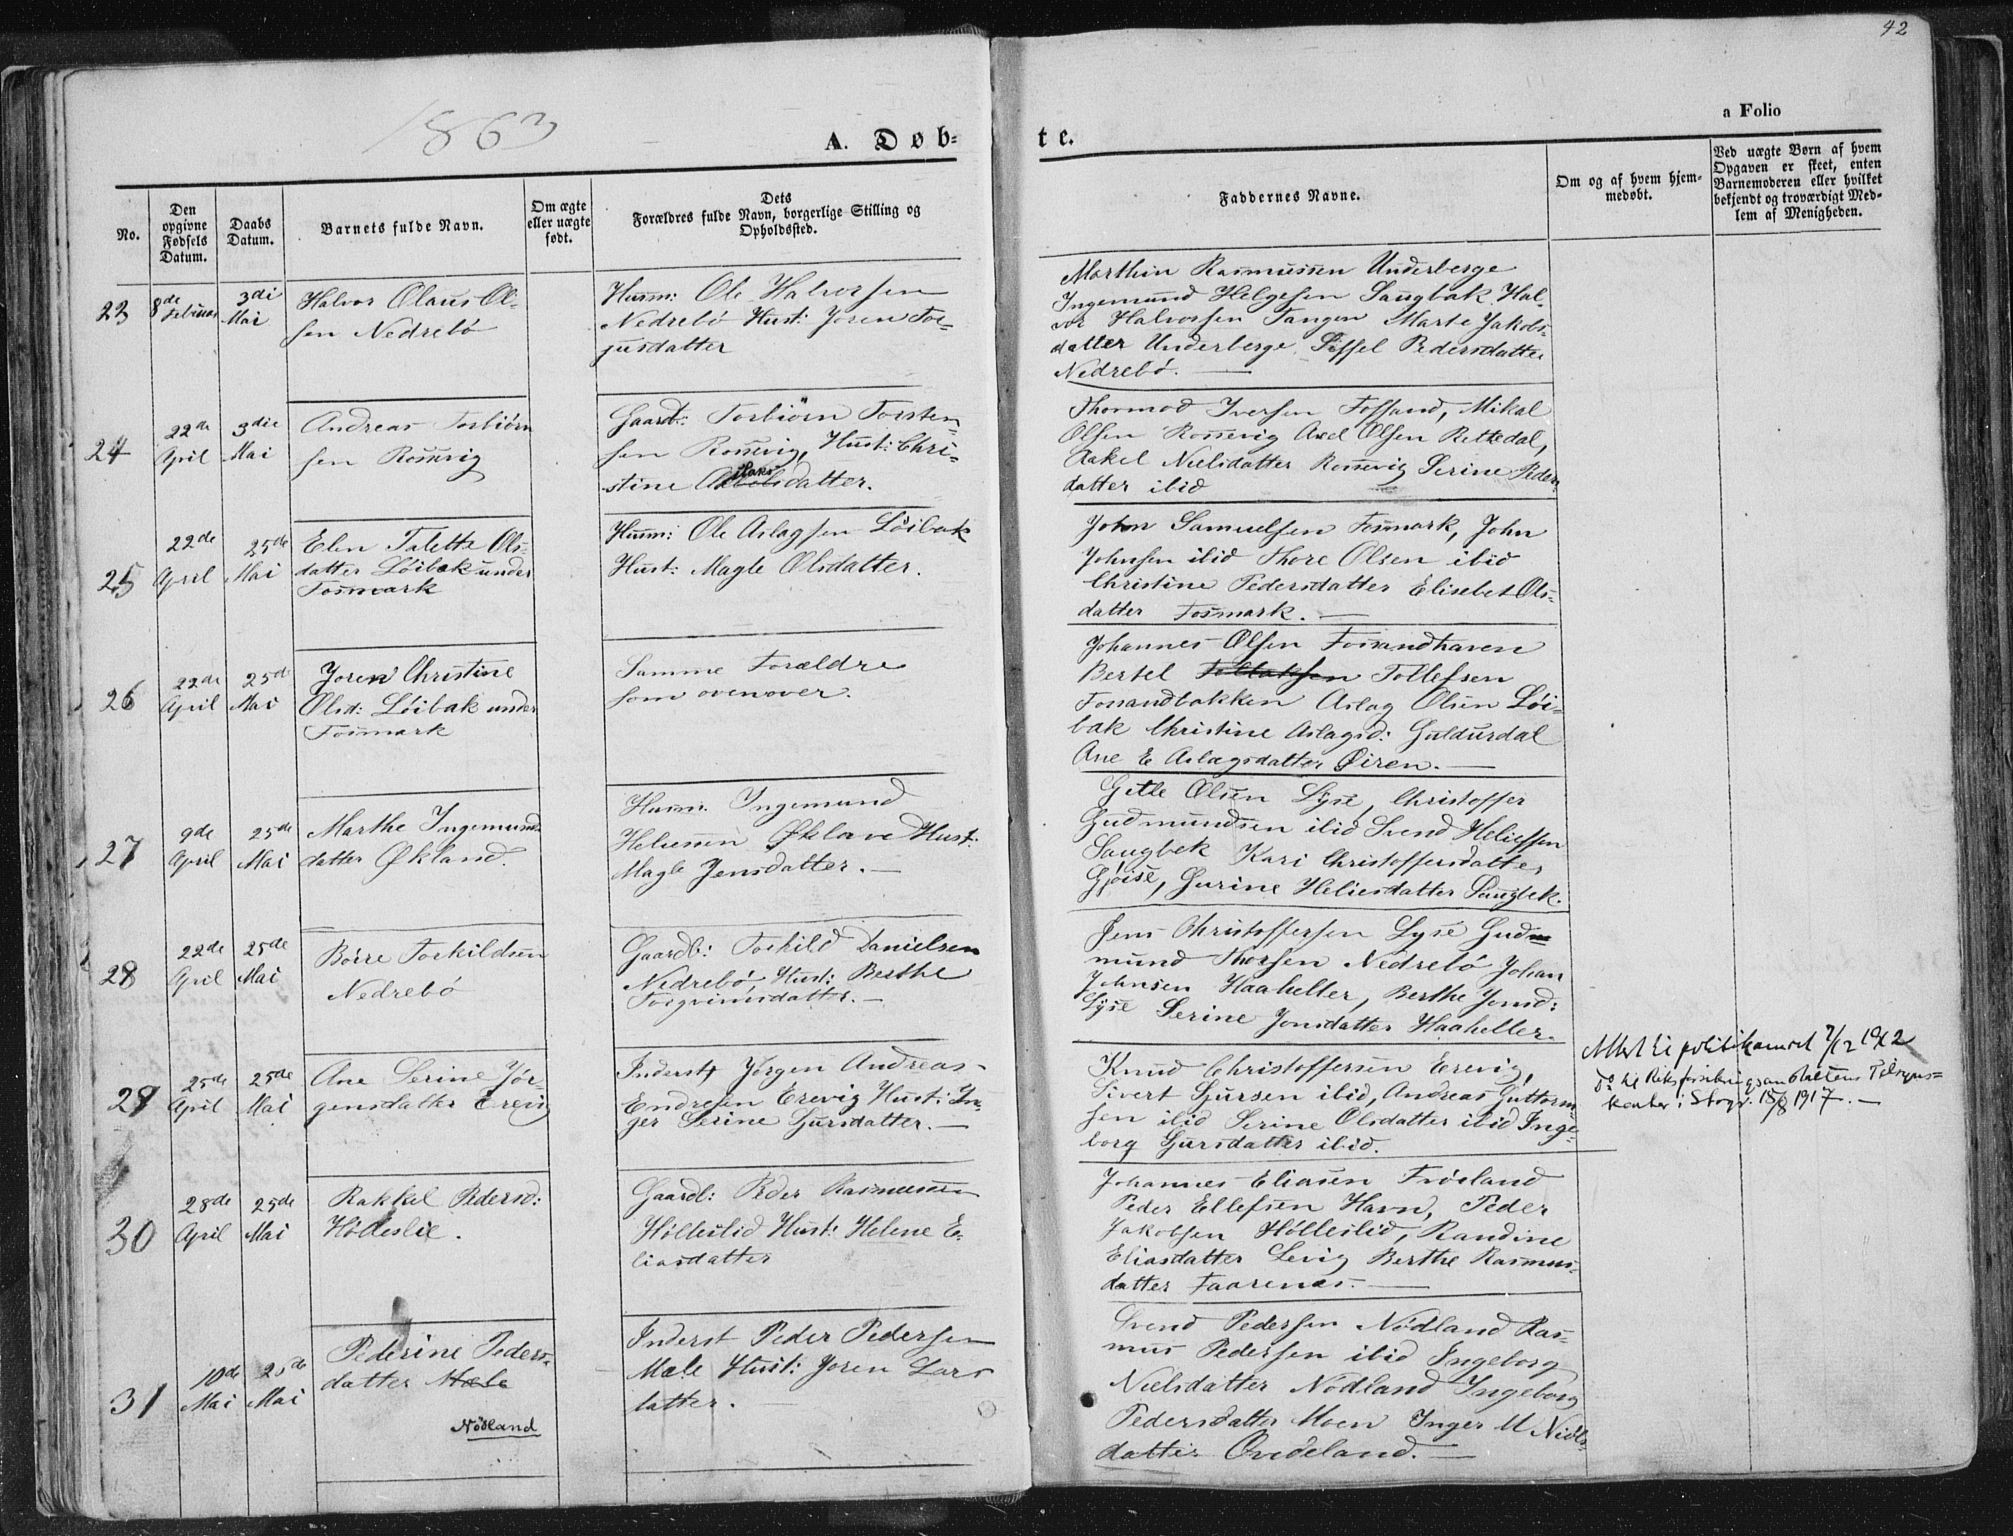 42
1863
a Folio
A. Døb-
te.
No.
Den
opgivne
Fødsels
Datum.
Daabs
Datum.
Barnets fulde Navn.
Om ægte
eller uægte
født.
Dets
Forældres fulde Navn, borgerlige Stilling og
Opholdssted.
Faddernes Navne.
Om og af hvem hjem-
medøbt.
Ved uægte Børn af hvem
Opgaven er skeet, enten
Barnemoderen eller hvilket
bekjendt og troværdigt Med-
lem af Menigheden.
23
8de
Februar
3di
Mai
Halvor Olaus Ol-
sen Nedrebö
Husm: Ole Halvorsen
Nedrebö Hust: Joren Tor-
jusdatter
Marthin Rasmussen Underberge
Ingemund Helgesen Saugbak Hal-
vor Halvorsen Tangen Marte Jakobs-
datter Underberge Siffel Pedersdatter
Nedrebö.
24
22de
April
3die
Mai
Andreas Torbiörn
sen Rossevig
Gaardb: Torbiörn Torsten-
sen Rossevig, Hust: Chri-
stine datter.
Thormod Iversen Fossand, Mikal
Olsen Rossevig Axel Olsen Rettedal,
Rakel Nielsdatter Rossevig Serine Peders
datter ibid
25
22de
April
25de
Mai
Elen Talette Ols-
datter Löibak under
Fosmark
Husm: Ole Aslagsen Löibak
Hust: Magle Olsdatter.
John Samuelsen Fosmark, John
Johnsen ibid Thore Olsen ibid
Christine Pedersdatter Elisebet Ols-
datter Fosmark.
26
22de
April
25de
Mai
Joren Christine
Olsd: Löibak under
Fosmark
Samme Forældre
som ovenover.
Johannes Olsen Fossandhaven
Bertel Tollefsen
Fossandbakken Aslag Olsen Löi-
bak Christine Aslagsd: Guldurdal
Ane E Aslagsdatter Øiren.
27
9de
April
25de
Mai
Marthe Ingemunds
datter Økland.
Husm: Ingemund
Heliesen Økland Hust:
Magle Jensdatter.
Gitle Olsen Lyse, Christoffer
Gudmundsen ibid Svend Heliesen
Saugbek Kari Christoffersdatter
Gjöise, Gurine Heliesdatter Saugbek.
28
22de
April
25de
Mai
Börre Torkildsen
Nedrebö
Gaardb: Torkild Danielsen
Nedrebö, Hust: Berthe
Torgrimsdatter.
Jens Christoffersen Lyse Gud-
mund Thorsen Nedrebö Johan
Johnsen Haaheller, Berthe Jonsd:
Lyse Serine Jonsdatter Haaheller.
29
25de
April
25de
Mai
Ane Serine Jör-
gensdatter Erevig
Inderst Jörgen Andreas
Endresen Erevig Hust: In-
ger Serine Gjursdatter.
Knud Christoffersen Erevig,
Sivert Gjursen ibid, Andreas Guttorm-
sen ibid Serine Olsdatter ibid Inge-
borg Gjursdatter ibid.
Attest til politikamret 7/12 1912
Do til Riksforsikringsanstaltens Tilsyns-
kontor i Stvgr. 18/8 1917.
30
28de
April
25de
Mai
Rakkel Pedersd:
Hödeslie.
Gaardb: Peder Rasmussen
Hölleslid Hust: Helene E-
liasdatter
Johannes Eliasen Fröiland
Peder Ellefsen Havn, Peder
Jakobsen Hölleslid, Randine
Eliasdatter Levig Berthe Rasmus-
datter Faarenes.
31
10de
Mai
25de
Mai
Pederine Peders-
datter Mæle
Nödland
Inderst Peder Pedersen
Mæle Hust: Joren Lars
datter.
Svend Pedersen Nödland Ras-
mus Pedersen ibid Ingeborg
Nielsdatter Nödland Ingeborg
Pedersdatter Moen Inger M Niels-
datter Qvideland.